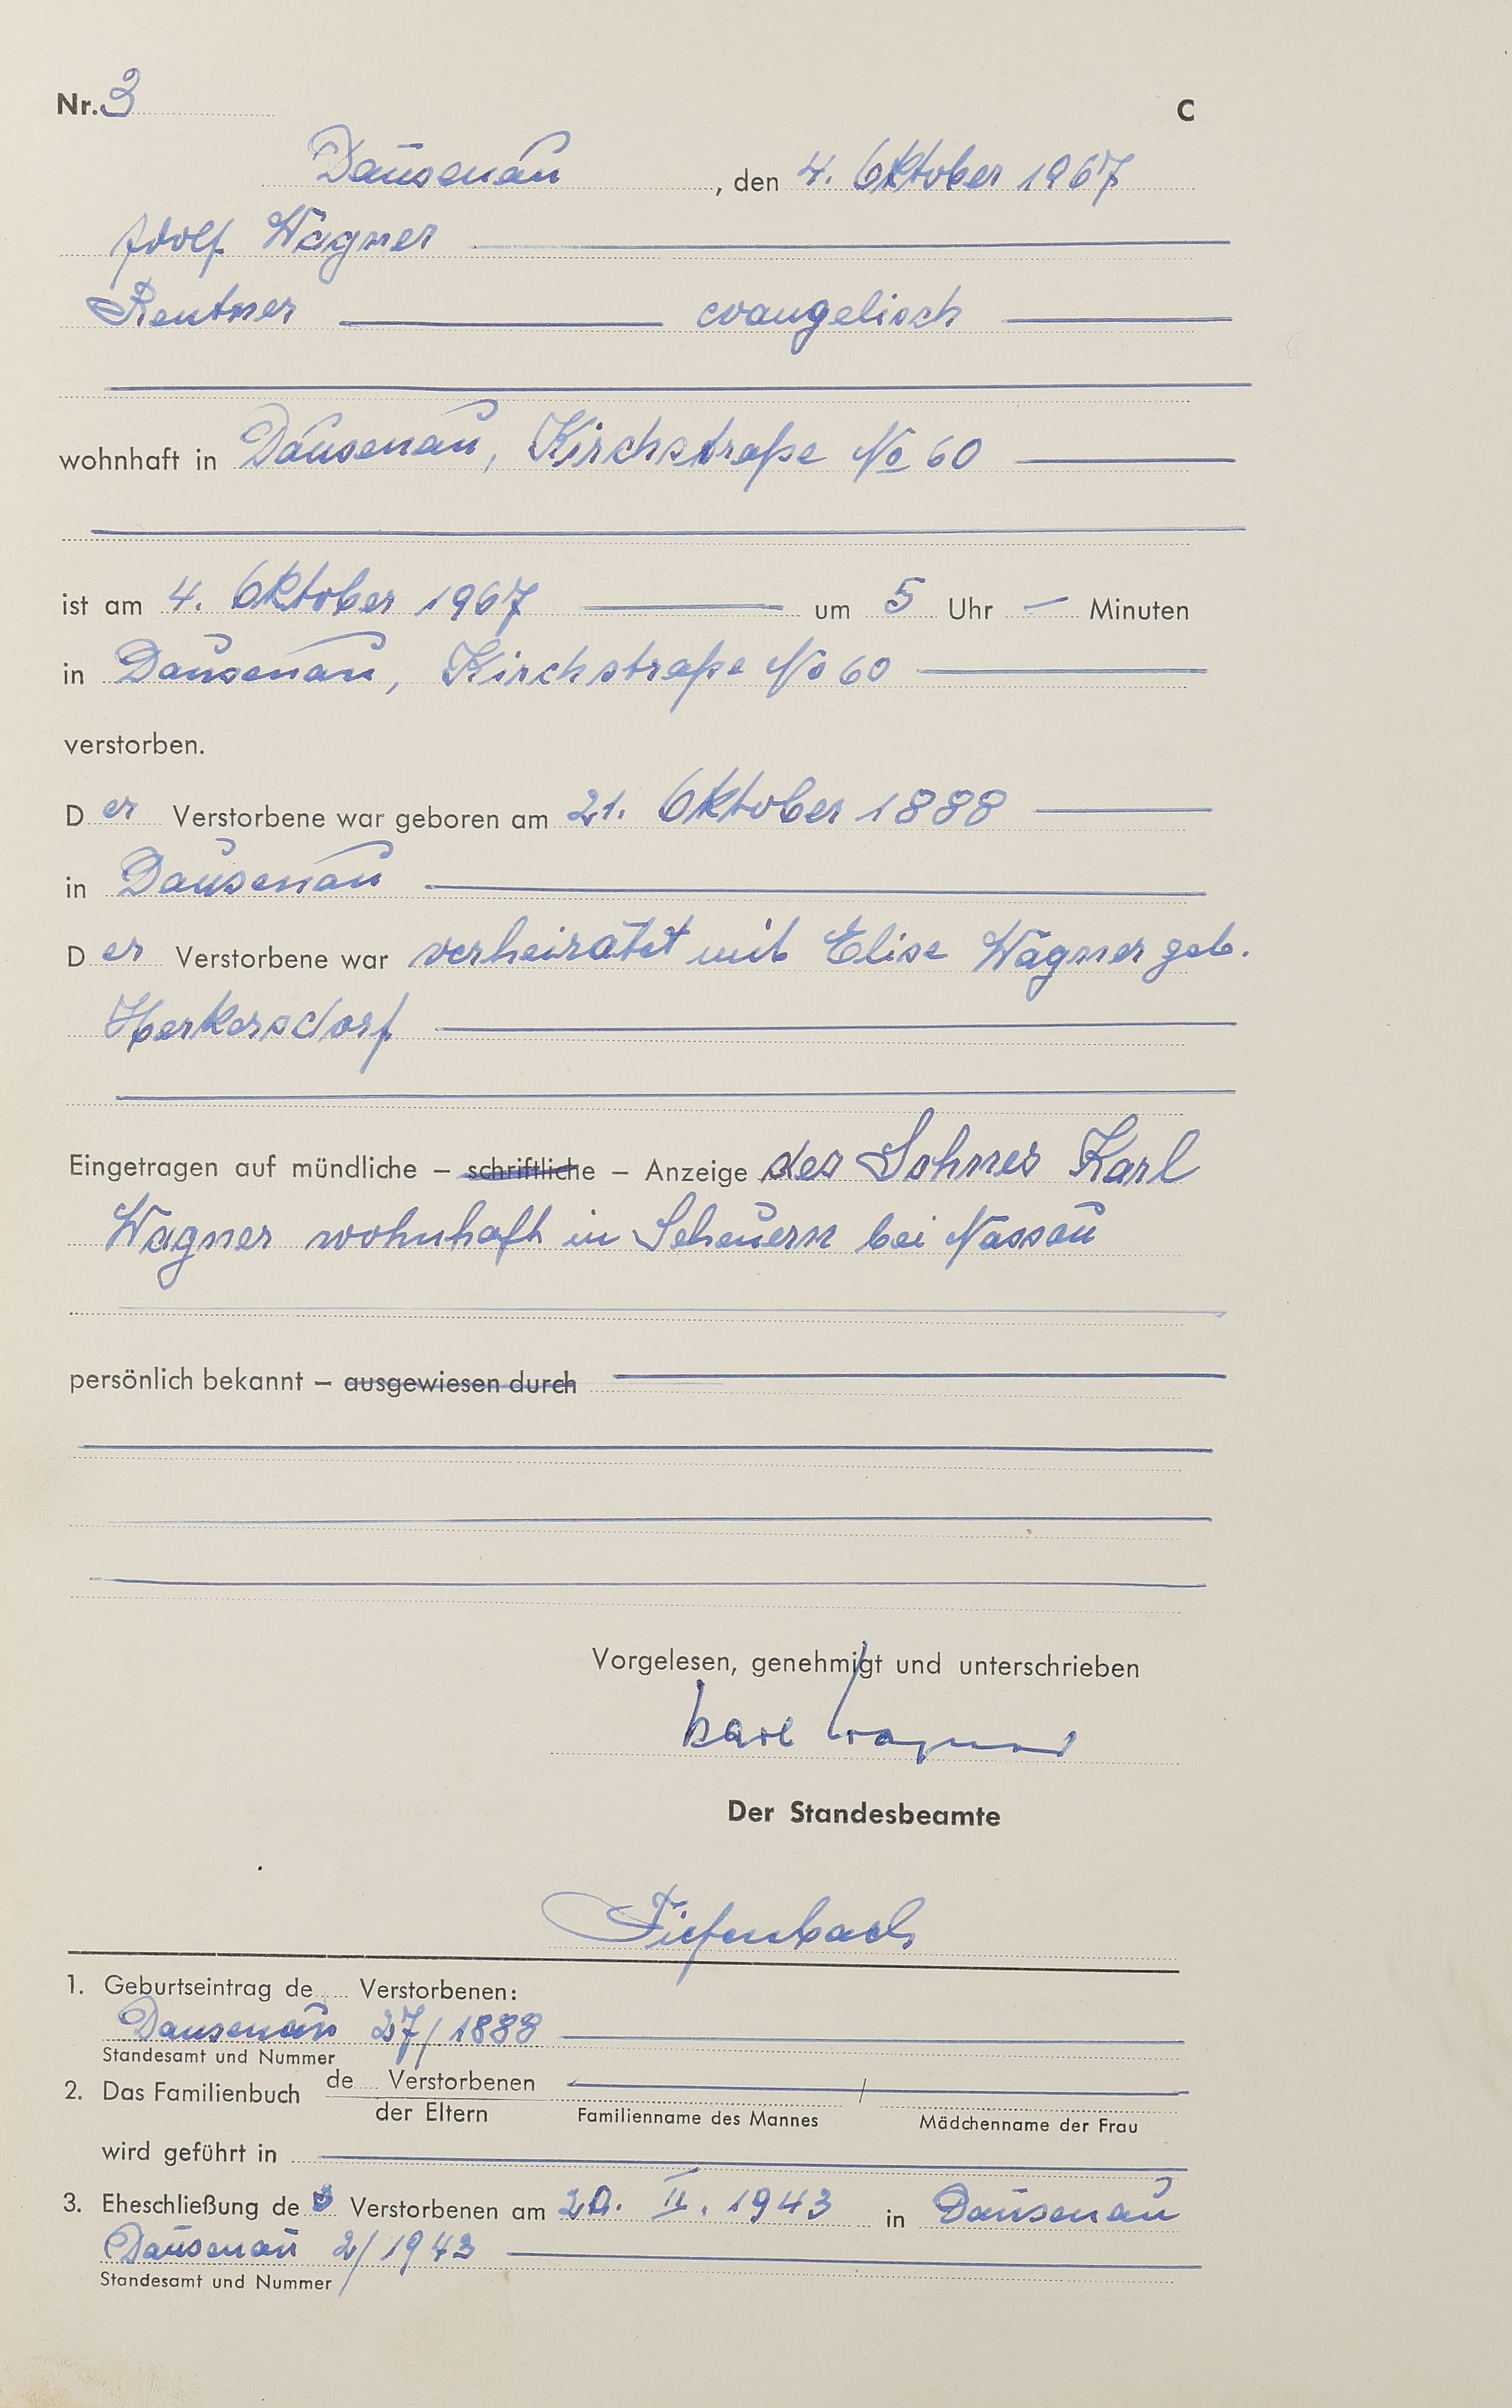 Nr. 3 C
Dausenau, den 4. Oktober 1967
Adolf Wagner
Rentner evangelisch
wohnhaft in Dausenau, Kirchstraße No 60
ist am 4. Oktober 1967 um 5 Uhr – Minuten
in Dausenau, Kirchstraße No 60
verstorben.
Der Verstorbene war geboren am 21. Oktober 1888
in Dausenau
Der Verstorbene war verheiratet mit Elise Wagner geb.
Herkersdorf
Eingetragen auf mündliche – schriftliche – Anzeige des Sohnes Karl
Wagner wohnhaft in Scheuern bei Nassau
persönlich bekannt – ausgewiesen durch
Vorgelesen, genehmigt und unterschrieben
Karl Wagner
Der Standesbeamte
Tiefenbach
1. Geburtseintrag de Verstorbenen:
Dausenau 27/1888
Standesamt und Nummer
2. Das Familienbuch de Verstorbenen /
der Eltern Familienname des Mannes Mädchenname der Frau
wird geführt in
3. Eheschließung des Verstorbenen am II. 1943 in Dausenau
Dausenau 2/1943
Standesamt und Nummer